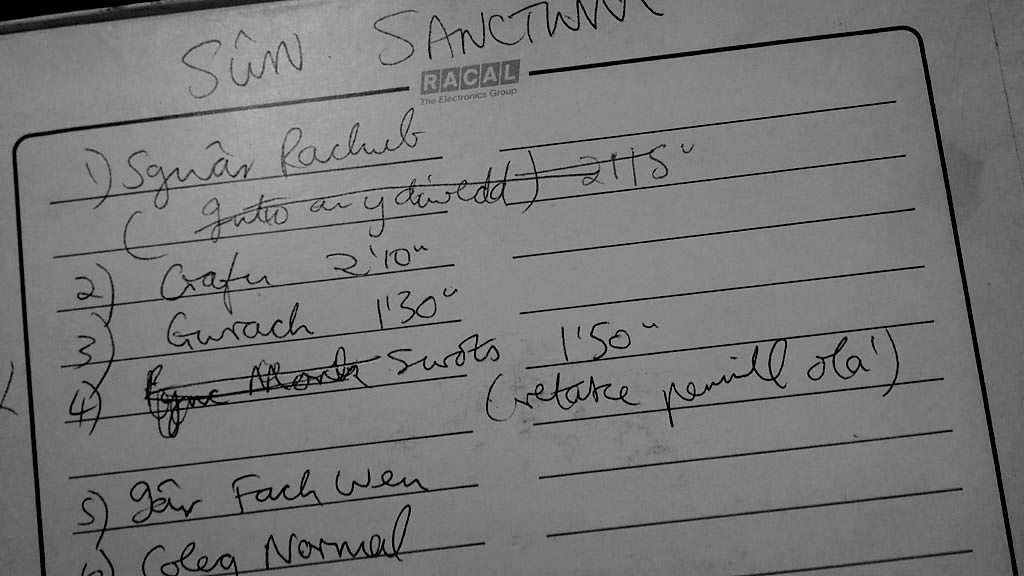 SŴN SANCTUM
RACAL
The Electronics Group
1) Sgwâr Rachub
( gitâr ar y diwedd ) 2'15"
2) Crafu 2'10"
3) Gwrach 1'30"
4) Swots 1'50"
(retake pennill ola')
5) Gêr Fach Wen
6) Coleg Normal